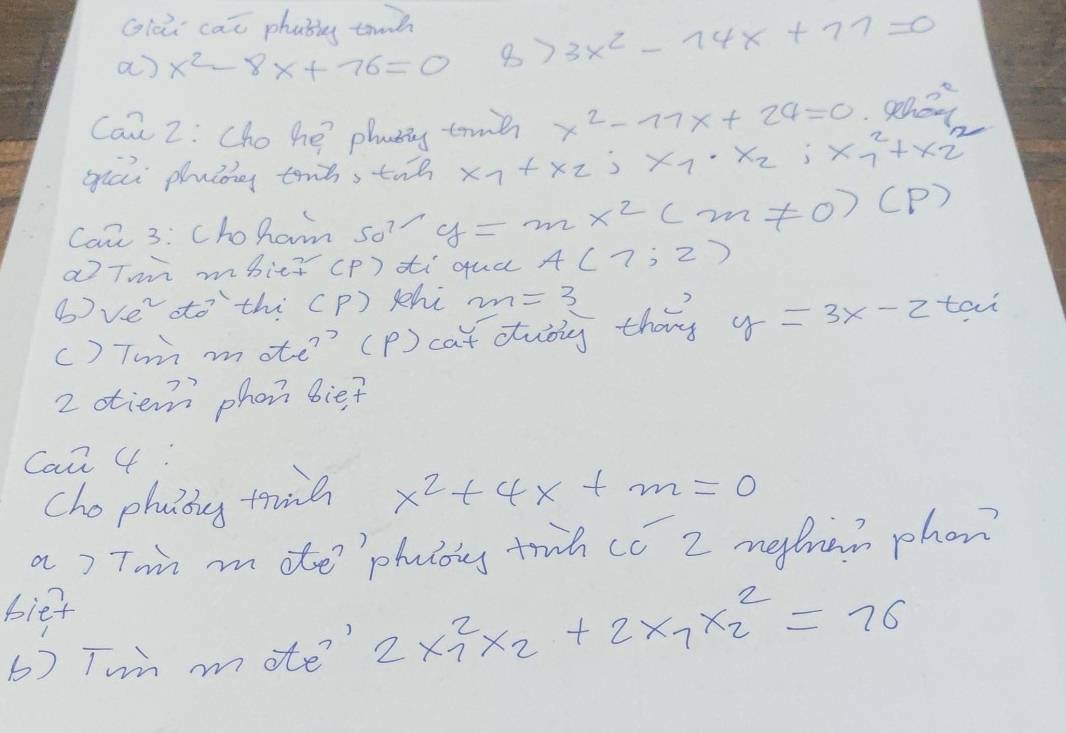 Giải các phương trình
a) x² - 8x + 16 = 0 b) 3x² - 14x + 11 = 0
Câu 2: Cho hệ phương trình x² - 11x + 24 = 0. Không
giải phương trình, tính x₁ + x₂ ; x₁ . x₂ ; x₁² + x₂²
Câu 3: Cho hàm số y = mx² (m ≠ 0) (P)
a) Tìm m biết (P) đi qua A(1; 2)
b) Vẽ đồ thị (P) khi m = 3
c) Tìm m để (P) cắt đường thẳng y = 3x - 2 tại
2 điểm phân biệt
Câu 4:
Cho phương trình x² + 4x + m = 0
a) Tìm m để phương trình có 2 nghiệm phân
biệt
b) Tìm m để 2x₁²x₂ + 2x₁x₂² = 16